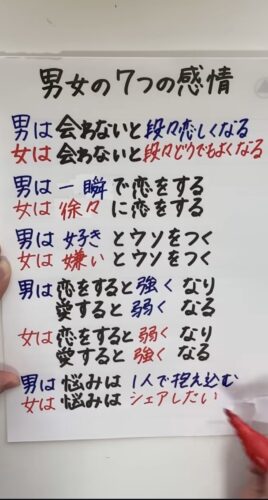 男女の7つの感情
男は会わないと段々恋しくなる
女は会わないと段々どうでもよくなる
男は一瞬で恋をする
女は徐々に恋をする
男は好きとウソをつく
女は嫌いとウソをつく
男は恋をすると強くなり
愛すると弱くなる
女は恋をすると弱くなり
愛すると強くなる
男は悩みは1人で抱え込む
女は悩みはシェアしたい